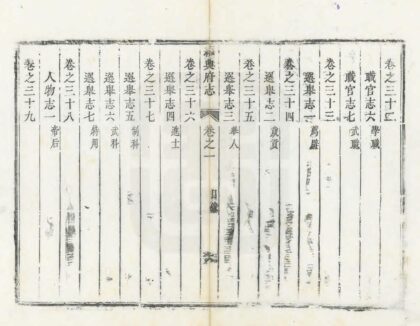 卷之三十二
職官志六 學職
職官志七 武職
卷之三十三
選舉志一 薦辟
卷之三十四
選舉志二 歲貢
卷之三十五
選舉志三 舉人
興府志 卷之一 目錄
卷之三十六
選舉志四 進士
卷之三十七
選舉志五 制科
選舉志六 武科
選舉志七 特用
卷之三十八
人物志一 帝后
卷之三十九